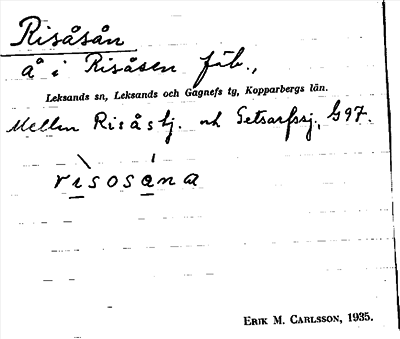 Risåsån
å i Risåsen fäb.,
Leksands sn, Leksands och Gagnefs tg, Kopparbergs län.
Mellan Risåstj. och Getsarfssj. G97.
risosana
ERIK M. CARLSSON, 1935.